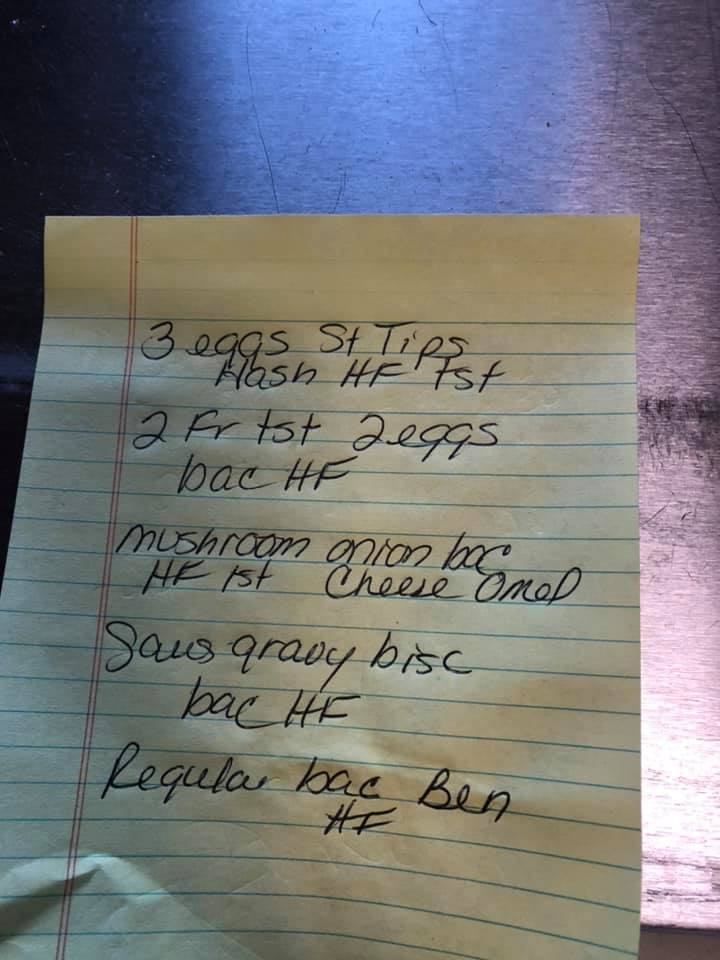 3 eggs St Tips
Hash HF tst
2 Fr tst 2 eggs
bac HF
mushroom onion bac
HF tst Cheese Omel
Saus gravy bisc
bac HF
Regular bac Ben
HF